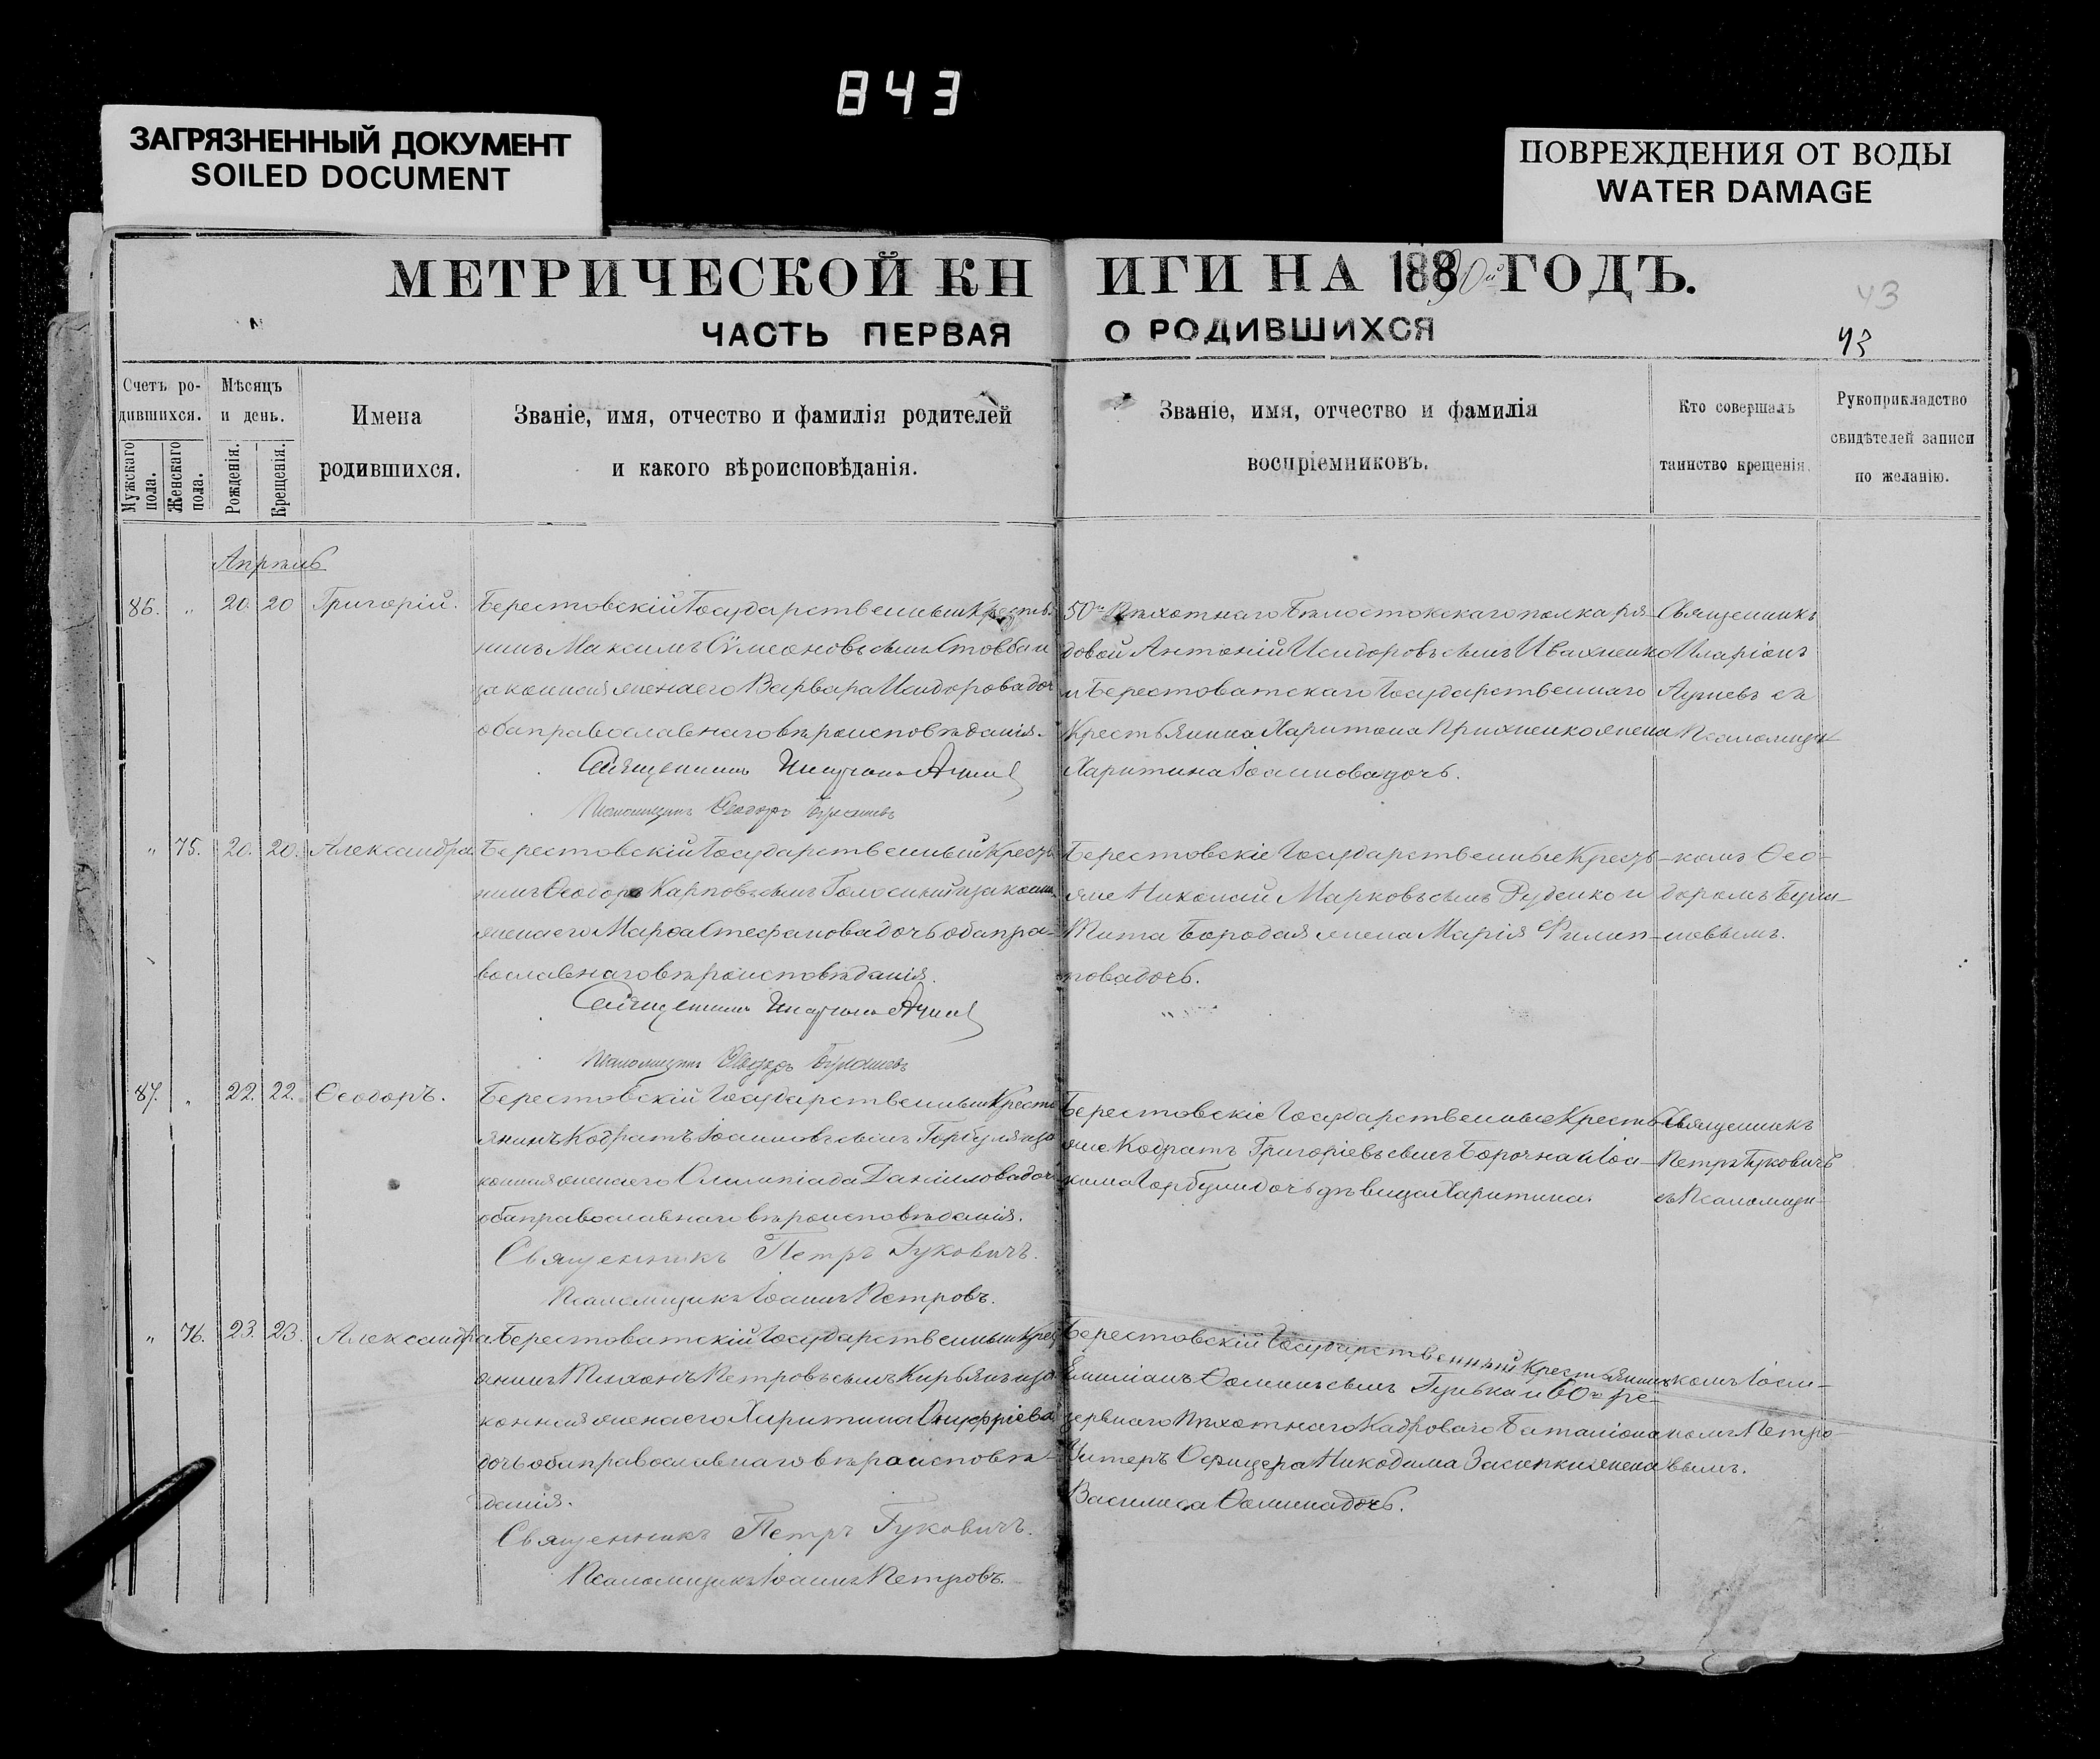 843
ЗАГРЯЗНЕННЫЙ ДОКУМЕНТ
SOILED DOCUMENT
ПОВРЕЖДЕНИЯ ОТ ВОДЫ
WATER DAMAGE
МЕТРИЧЕСКОЙ КН
ИГИ НА 1890й ГОДЪ.
43
ЧАСТЬ ПЕРВАЯ
О РОДИВШИХСЯ
43
Счетъ ро-
дившихся.
Мужскаго пола.
Женскаго пола.
Мѣсяцъ
и день.
Рожденія.
Крещенія.
Имена
родившихся.
Званіе, имя, отчество и фамилія родителей
и какого вѣроисповѣданія.
Званіе, имя, отчество и фамилія
воспріемниковъ.
Кто совершалъ
таинство крещенія.
Рукоприкладство
свидѣтелей записи
по желанію.
Апрѣль
86. " 20. 20 Григорій.
Берестовскій Государственный Кресть
нинъ Максимъ Сѵмеоновъ сынъ
законная жена его Варвара Исидорова доч
оба православнаго вѣроисповѣданія.
Священникъ Иларіонъ
Псаломщикъ Ѳеодоръ
50го Пѣхотнаго Бѣлостокскаго полка ря-
довой Антоній Исидоровъ сынъ Ивахненко
и Берестоватскаго Государственнаго
Крестьянина Харитона Прихненко жена
Харитина Іоаннова дочь.
Священникъ
Иларіонъ
съ
Псаломщи-
" 75. 20. 20. Александра.
Берестовскій Государственный Кресть
нинъ Ѳеодоръ Карповъ сынъ Голосный и законн.
жена его Марѳа Стефанова дочь оба пра-
вославнаго вѣроисповѣданія.
Священникъ Иларіонъ
Псаломщикъ Ѳеодоръ
Берестовскіе Государственные Кресть-
яне Николай Марковъ сынъ Руденко и
Тита Бородая жена Марія Филип-
пова дочь.
комъ Ѳео-
доромъ
87. " 22. 22. Ѳеодоръ.
Берестовскій Государственный Кресть
янинъ Кодратъ Іоанновъ сынъ Горбуля и за
конная жена его Олимпіада Даніилова доч
оба православнаго вѣроисповѣданія.
Священникъ Петръ Гуковичъ.
Псаломщикъ Іоаннъ Петровъ.
Берестовскіе Государственные Кресть
яне Кодратъ Григоріевъ сынъ и Іоа-
кима Горбули дочь дѣвица Харитина.
Священникъ
Петръ Гуковичъ
съ Псаломщи-
" 76. 23. 23. Александра.
Берестоватскій Государственный Крес
янинъ Тихонъ Петровъ сынъ Кирьянъ и за
конная жена его Харитина Онуфріева
дочь оба православнаго вѣроисповѣ-
данія.
Священникъ Петръ Гуковичъ.
Псаломщикъ Іоаннъ Петровъ.
Берестовскій Государственный Крестьянинъ
Емиліанъ Ѳоминъ сынъ Гунька и 60го ре-
зервнаго Пѣхотнаго Кадроваго Баталіона
Унтеръ Офицера Никодима жена
Василиса Ѳомина дочь.
комъ Іоан-
номъ Петро-
вымъ.